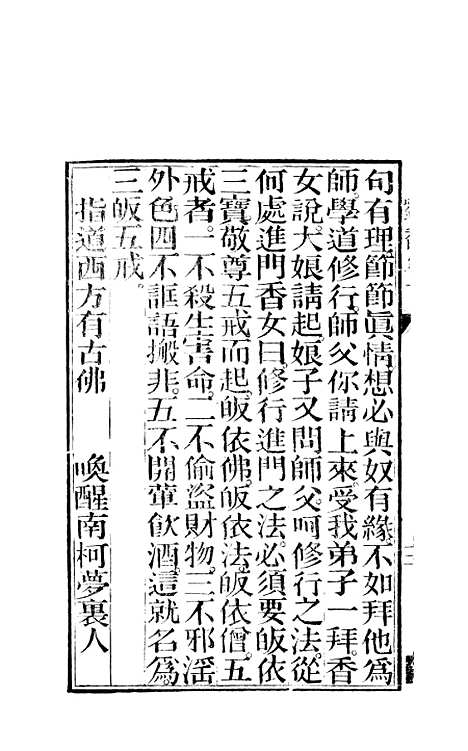 句有理節節眞情想必與奴有緣不如拜他為
師。學道修行。師父你請上來。受我弟子一拜。香
女說。大娘請起。娘子又問師父。呵修行之法。從
何處進門。香女曰。修行進門之法。必須要皈依
三寶敬尊五戒而起。皈依佛。皈依法。皈依僧。五
戒者。一不殺生害命。二不偷盜財物。三不邪淫
外色。四不誆語搬非。五不開葷飲酒。這就名為。
三皈五戒。
指道西方有古佛　喚醒南柯夢裏人